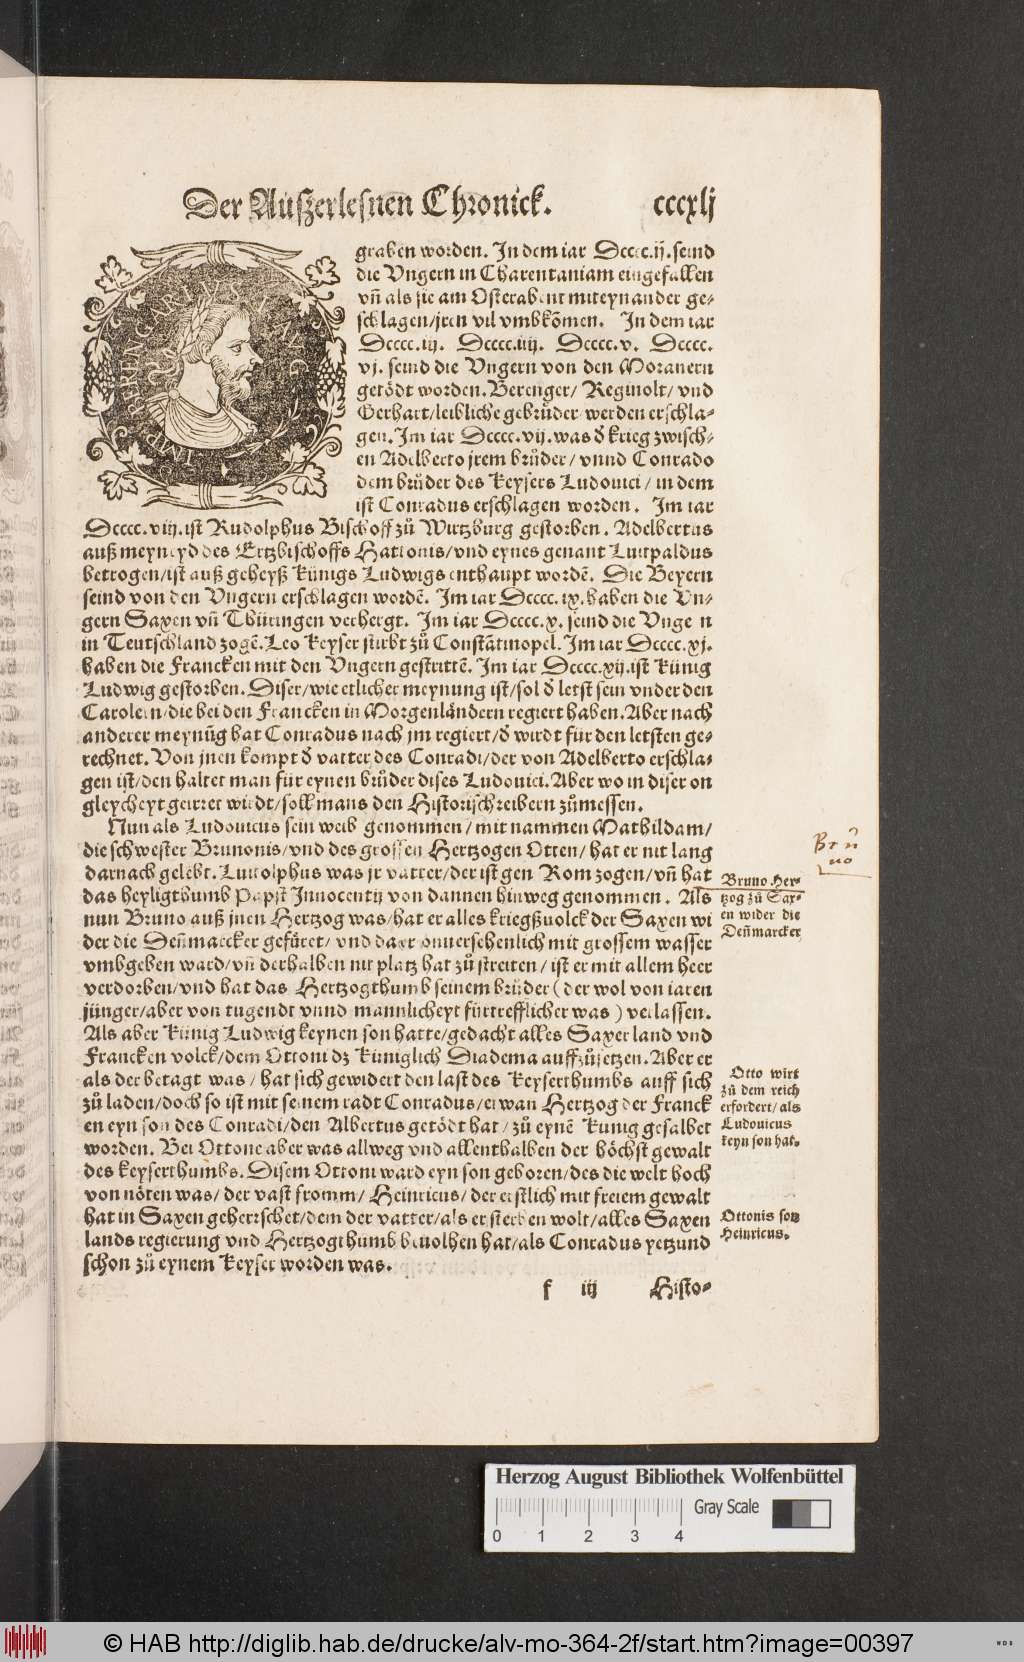 Der Außerlesnen Chronick. cccxlj
IMP. BERENGARIVS AVG
graben worden. In dem iar Dcccc.ij. seind
die Vngern in Charentaniam eingefallen
vñ als sie am Osterabent miteynander ge-
schlagen/jren vil vmbkõmen. In dem iar
Dcccc.iij. Dcccc.iiij. Dcccc.v. Dcccc.
vj. seind die Vngern von den Moranern
getödt worden. Berenger/ Reginolt/ vnd
Gerhart/leibliche gebrůder werden erschla-
gen. Im iar Dcccc.vij.was d̃ krieg zwisch-
en Adelberto jrem brůder/ vnnd Conrado
dem brůder des Keysers Ludouici/ in dem
ist Conradus erschlagen worden. Im iar
Dcccc.viij.ist Rudolphus Bischoff zů Wirtzburg gestorben. Adelbertus
auß meyneyd des Ertzbischoffs Hattonis/vnd eynes genant Luitpaldus
betrogen/ist auß geheyß Künigs Ludwigs enthaupt wordẽ. Die Beyern
seind von den Vngern erschlagen wordẽ. Im iar Dcccc.ix.haben die Vn-
gern Saxen vñ Thüringen verhergt. Im iar Dcccc.x. seind die Vnge n
in Teutschland zogẽ. Leo Keyser stirbt zů Constãtinopel. Im iar Dcccc.xj.
haben die Francken mit den Vngern gestrittẽ. Im iar Dcccc.xij.ist Künig
Ludwig gestorben. Diser/wie etlicher meynung ist/sol d̃ letst sein vnder den
Carolein/die bei den Francken in Morgenländern regiert haben. Aber nach
anderer meynũg hat Conradus nach jm regiert/d̃ wirdt für den letsten ge-
rechnet. Von jnen kompt d̃ vatter des Conradi/der von Adelberto erschla-
gen ist/den haltet man für eynen brůder dises Ludouici. Aber wo in diser on
gleycheyt geirret wirdt/soll mans den Historischreibern zůmessen.
Nun als Ludouicus sein weib genommen/ mit nammen Mathildam/
die schwester Brunonis/vnd des grossen Hertzogen Otten/ hat er nit lang
darnach gelebt. Luitolphus was jr vatter/der ist gen Rom zogen/vñ hat
das heyligthumb Papst Innocentij von dannen hinweg genommen. Als
nun Bruno auß jnen Hertzog was/hat er alles kriegßuolck der Saxen wi
der die Deñmarcker gefůret/ vnd da er onuersehenlich mit grossem wasser
vmbgeben ward/vñ derhalben nit platz hat zů streiten/ ist er mit allem heer
verdorben/vnd hat das Hertzogthumb seinem brůder (der wol von iaren
jünger/aber von tugendt vnnd mannlicheyt fürtrefflicher was) verlassen.
Als aber Künig Ludwig keynen son hatte/gedacht alles Saxer land vnd
Francken volck/dem Ottoni dz Küniglich Diadema auffzůsetzen. Aber er
als der betagt was/ hat sich gewidert den last des Keyserthumbs auff sich
zů laden/doch so ist mit seinem radt Conradus/etwan Hertzog der Franck
en eyn son des Conradi/den Albertus getödt hat/ zů eynẽ Künig gesalbet
worden. Bei Ottone aber was allweg vnd allenthalben der höchst gewalt
des keyserthumbs. Disem Ottoni ward eyn son geboren/des die welt hoch
von nöten was/ der vast fromm/ Heinricus/ der erstlich mit freiem gewalt
hat in Saxen geherrschet/dem der vatter/als er sterben wolt/alles Saxen
lands regierung vnd Hertzogthumb beuolhen hat/als Conradus yetzund
schon zů eynem Keyser worden was.
Brũ
no
Bruno Her-
tzog zů Sax-
en wider die
Deñmarcker
Otto wirt
zů dem reich
erfordert/als
Ludouicus
keyn son hat.
Ottonis son
Heinricus.
f iij Histo-
Herzog August Bibliothek Wolfenbüttel
Gray Scale
0 1 2 3 4
© HAB http://diglib.hab.de/drucke/alv-mo-364-2f/start.htm?image=00397